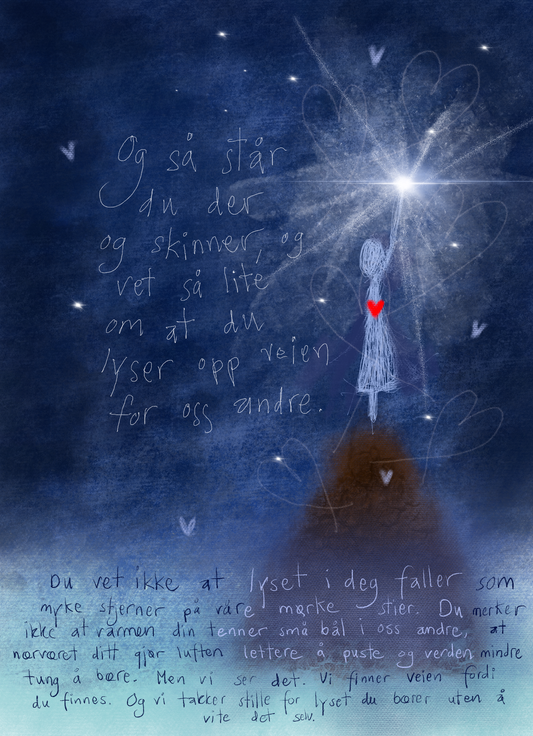 Og så står
du der
og skinner, og
vet så lite
om at du
lyser opp veien
for oss andre.
Du vet ikke at lyset i deg faller som
myke stjerner på våre mørke stier. Du merker
ikke at varmen din tenner små bål i oss andre, at
nærværet ditt gjør luften lettere å puste og verden mindre
tung å bære. Men vi ser det. Vi finner veien fordi
du finnes. Og vi takker stille for lyset du bærer uten å
vite det selv.